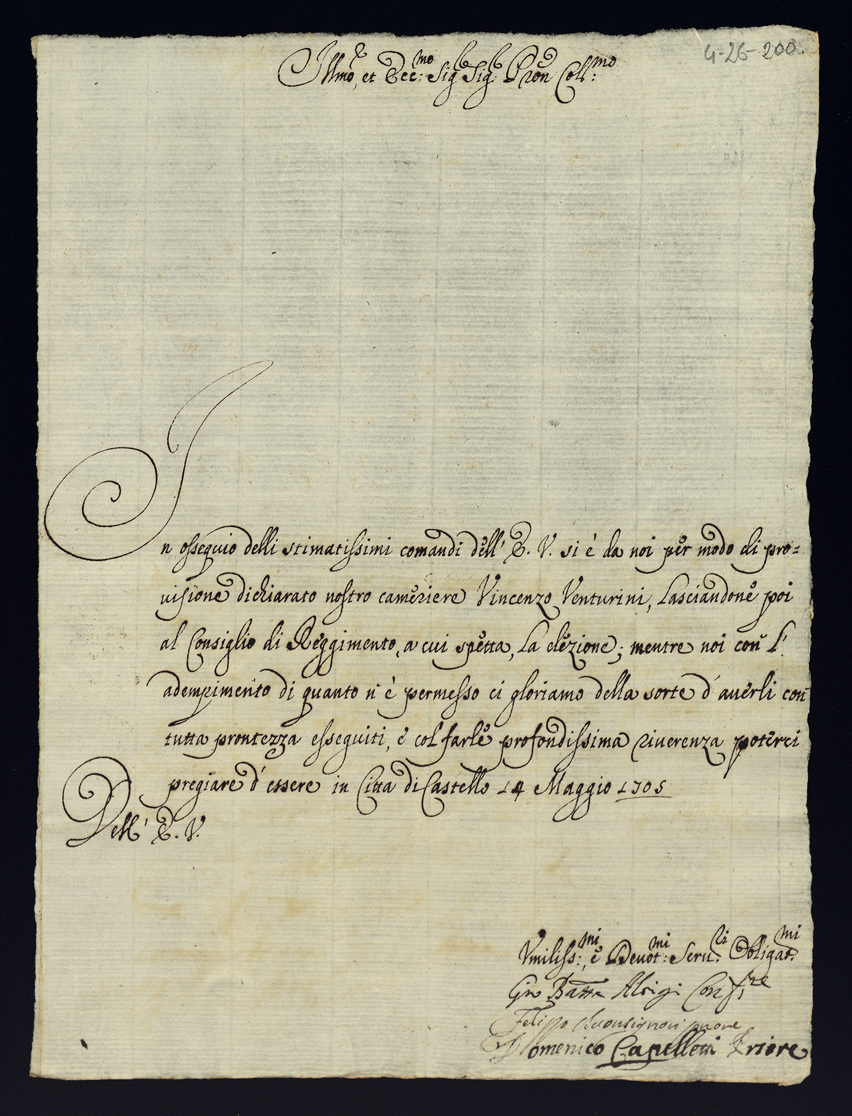 4-26-200
Illmo, et Ecc:mo Sig.r Sig.r Pron Coll:mo
In osseguio delli stimatissimi comandi dell' E. V. si è da noi per modo di pro=
visione dichiarato nostro cameriere Vincenzo Venturini, Lasciandone poi
al Consiglio di Reggimento, a cui spetta, La elezione; mentre noi con l'
adempimento di quanto n' è permesso ci gloriamo della sorte d' averli con
tutta prontezza esseguiti, e col farle profondissima riverenza poterci
pregiare d' essere in Citta di Castello 14 Maggio 1705
Dell' E. V.
Vmiliss:mi, e Devot:mi Serv:ri Obligat:mi
Gio Batta Aloigi
Felippo
Domenico Capelleti Priore